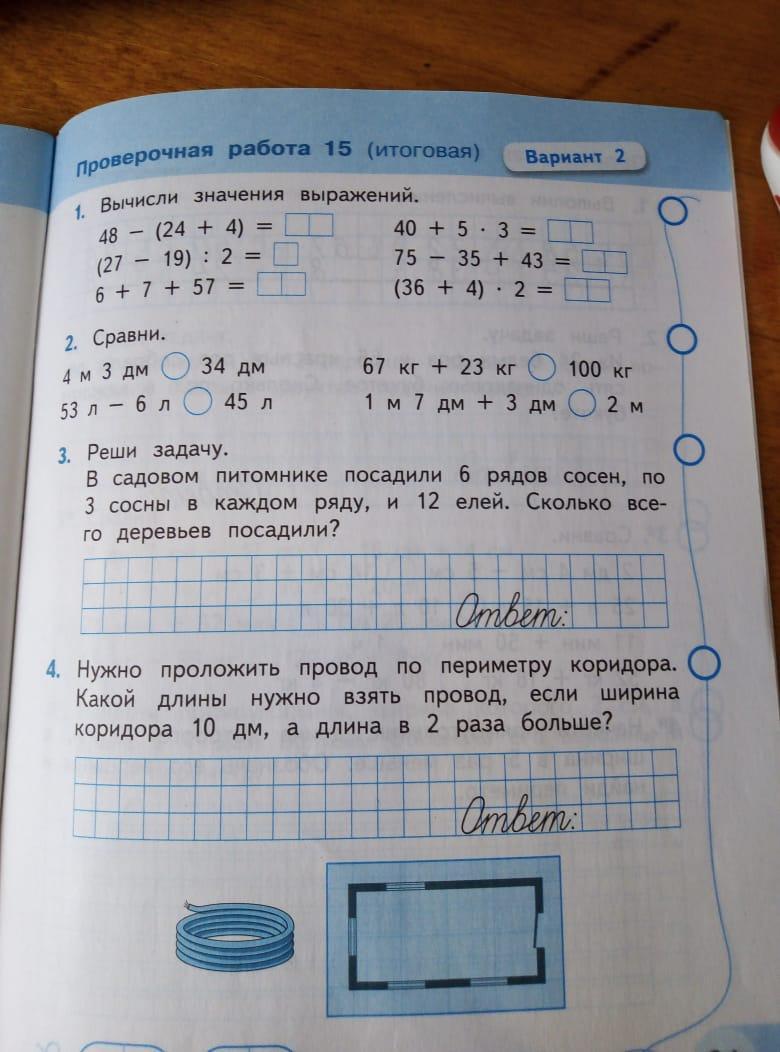 Проверочная работа 15 (итоговая) Вариант 2
1. Вычисли значения выражений.
48 − (24 + 4) = 40 + 5 · 3 =
(27 − 19) : 2 = 75 − 35 + 43 =
6 + 7 + 57 = (36 + 4) · 2 =
2. Сравни.
4 м 3 дм 34 дм 67 кг + 23 кг 100 кг
53 л − 6 л 45 л 1 м 7 дм + 3 дм 2 м
3. Реши задачу.
В садовом питомнике посадили 6 рядов сосен, по
3 сосны в каждом ряду, и 12 елей. Сколько все-
го деревьев посадили?
Ответ:
4. Нужно проложить провод по периметру коридора.
Какой длины нужно взять провод, если ширина
коридора 10 дм, а длина в 2 раза больше?
Ответ: